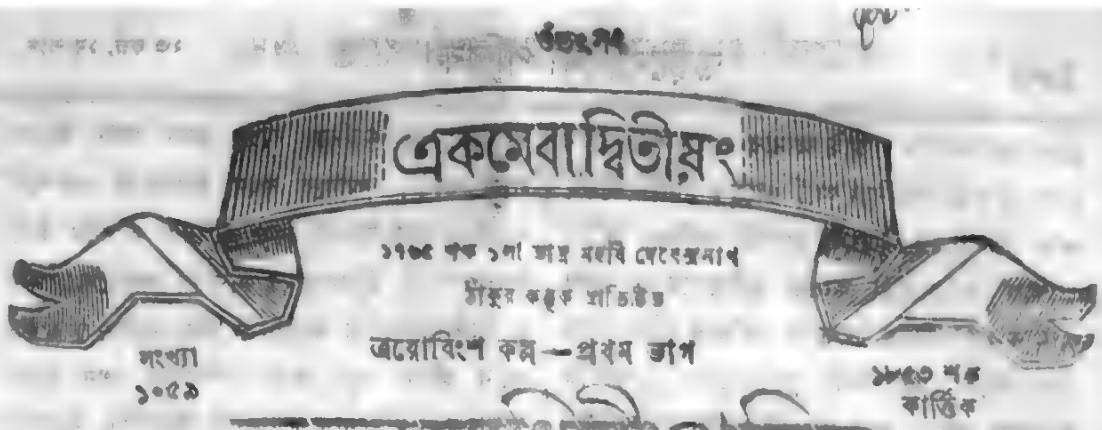 ওঁতৎসৎ
একমেবাদ্বিতীয়ং
১৭৬৫ শক ১লা ভাদ্র মহর্ষি দেবেন্দ্রনাথ
ঠাকুর কর্তৃক প্রতিষ্ঠিত
ত্রয়োবিংশ কল্প—প্রথম ভাগ
সংখ্যা
১০৫৯
১৮৫৩ শক
কার্ত্তিক